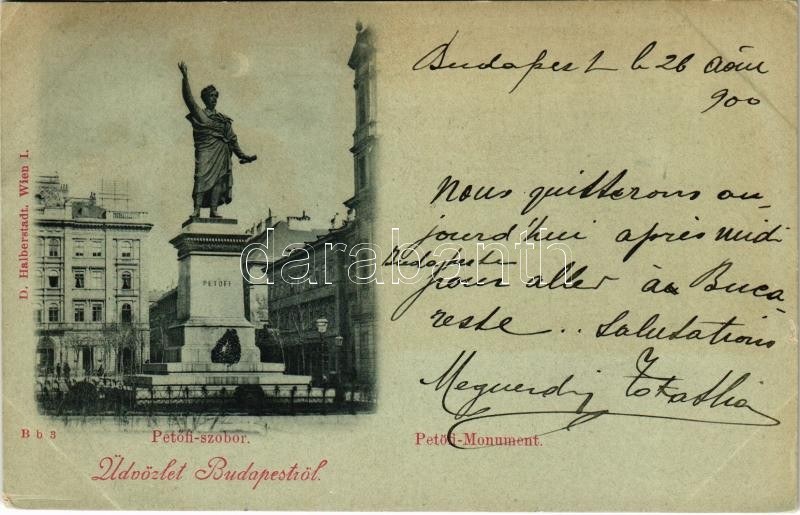 Budapest le 26 Août
900
Nous quitterons au-
jourd'hui après midi
Budapeste
pour aller à Buca-
reste .. Salutations
Meguerdig
D. Halberstadt, Wien I.
PETŐFI
darabanth
B b 3
Petőfi-szobor.
Petőfi-Monument.
Üdvözlet Budapestről.